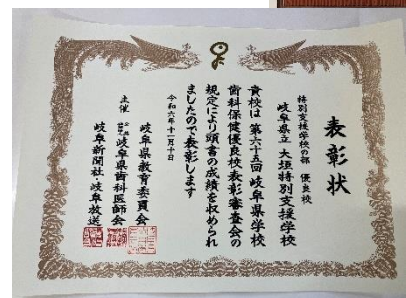 表彰状
特別支援学校の部 優良校
岐阜県立 大垣特別支援学校
貴校は 第六十五回 岐阜県学校
歯科保健優良校表彰審査会の
規定により頭書の成績を収められ
ましたので表彰します
令和六年十一月十日
岐阜県教育委員会
主催 岐阜県歯科医師会
岐阜新聞社 岐阜放送